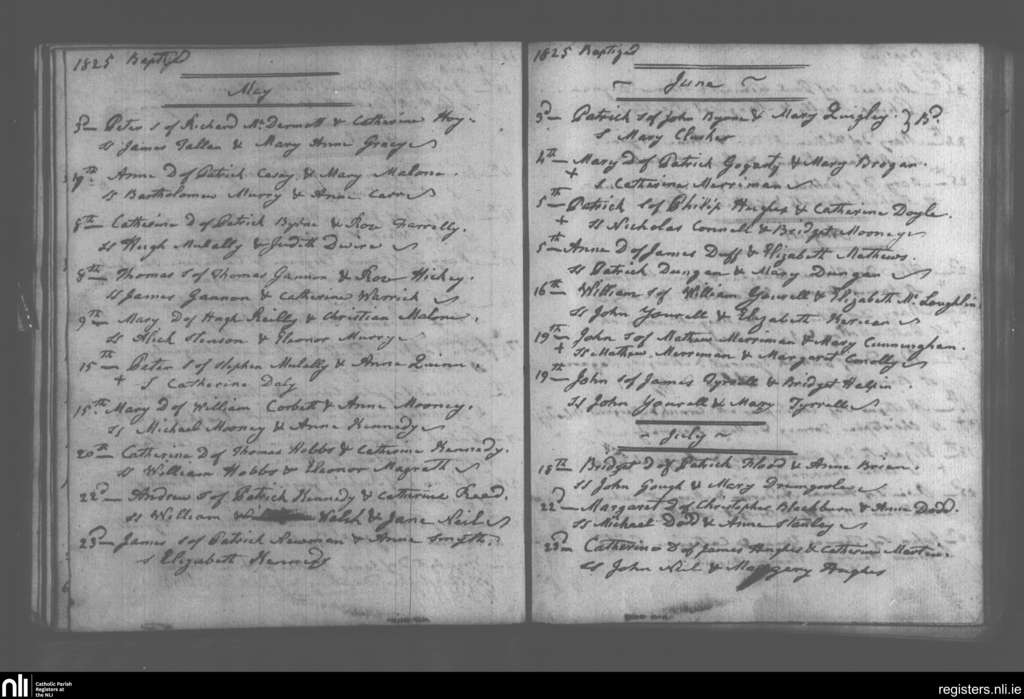 1825 Baptized
May
3d Peter S of Richard McDermott & Catherine Hoy.
Ss James Tallan & Mary Anne Gracy
7th Anne D of Patrick Casey & Mary Malone.
Ss Bartholomew Murry & Anne Carr
8th Catherine D of Patrick Byrne & Rose Farrelly.
Ss Hugh Mulally & Judith Dwire
8th Thomas S of Thomas Gannon & Rose Hickey.
Ss James Gannon & Catherine Warrick
9th Mary D of Hugh Reilly & Christian Malone.
Ss Mick Stenson & Eleonor Murry
15th Peter S of Stephen Mulally & Anne Quinn.
+ S Catherine Daly
15th Mary D of William Corbett & Anne Mooney.
Ss Michael Mooney & Anne Kennedy
20th Catherine D of Thomas Hobbs & Catherine Kennedy.
Ss William Hobbs & Eleonor Magrath
22d Andrew S of Patrick Kennedy & Catherine Reed.
Ss William Walsh & Jane Neil
23d James S of Patrick Newman & Anne Smyth.
S Elizabeth Kennedy
1825 Baptized
~ June ~
3d Patrick S of John Byrne & Mary Quigley. } Bd.
S Mary Clusker
4th Mary D of Patrick Gogarty & Mary Brogan.
+ S Catherine Merriman
5th Patrick S of Philip Hughes & Catherine Doyle.
+ Ss Nicholas Connell & Bridget Mooney
5th Anne D of James Duff & Elizabeth Mathews.
Ss Patrick Dungan & Mary Dungan
16th William S of William Yourell & Elizabeth McLoughlin.
Ss John Yourell & Elizabeth
19th John S of Mathew Merriman & Mary Cunningham.
+ Ss Mathew Merriman & Margaret Conolly
19th John S of James Tyrrell & Bridget Halpin.
Ss John Yourell & Mary Tyrrell
~ July ~
18th Bridget D of Patrick Flood & Anne Brien.
Ss John Gough & Mary Drumgoole
22d Margaret D of Christopher Blackburn & Anne Dodd.
Ss Michael Dodd & Anne Stanley
23d Catherine D of James Hughes & Catherine Martin.
Ss John Neil & Margery Hughes
nli
Catholic Parish
Registers at
the NLI
registers.nli.ie